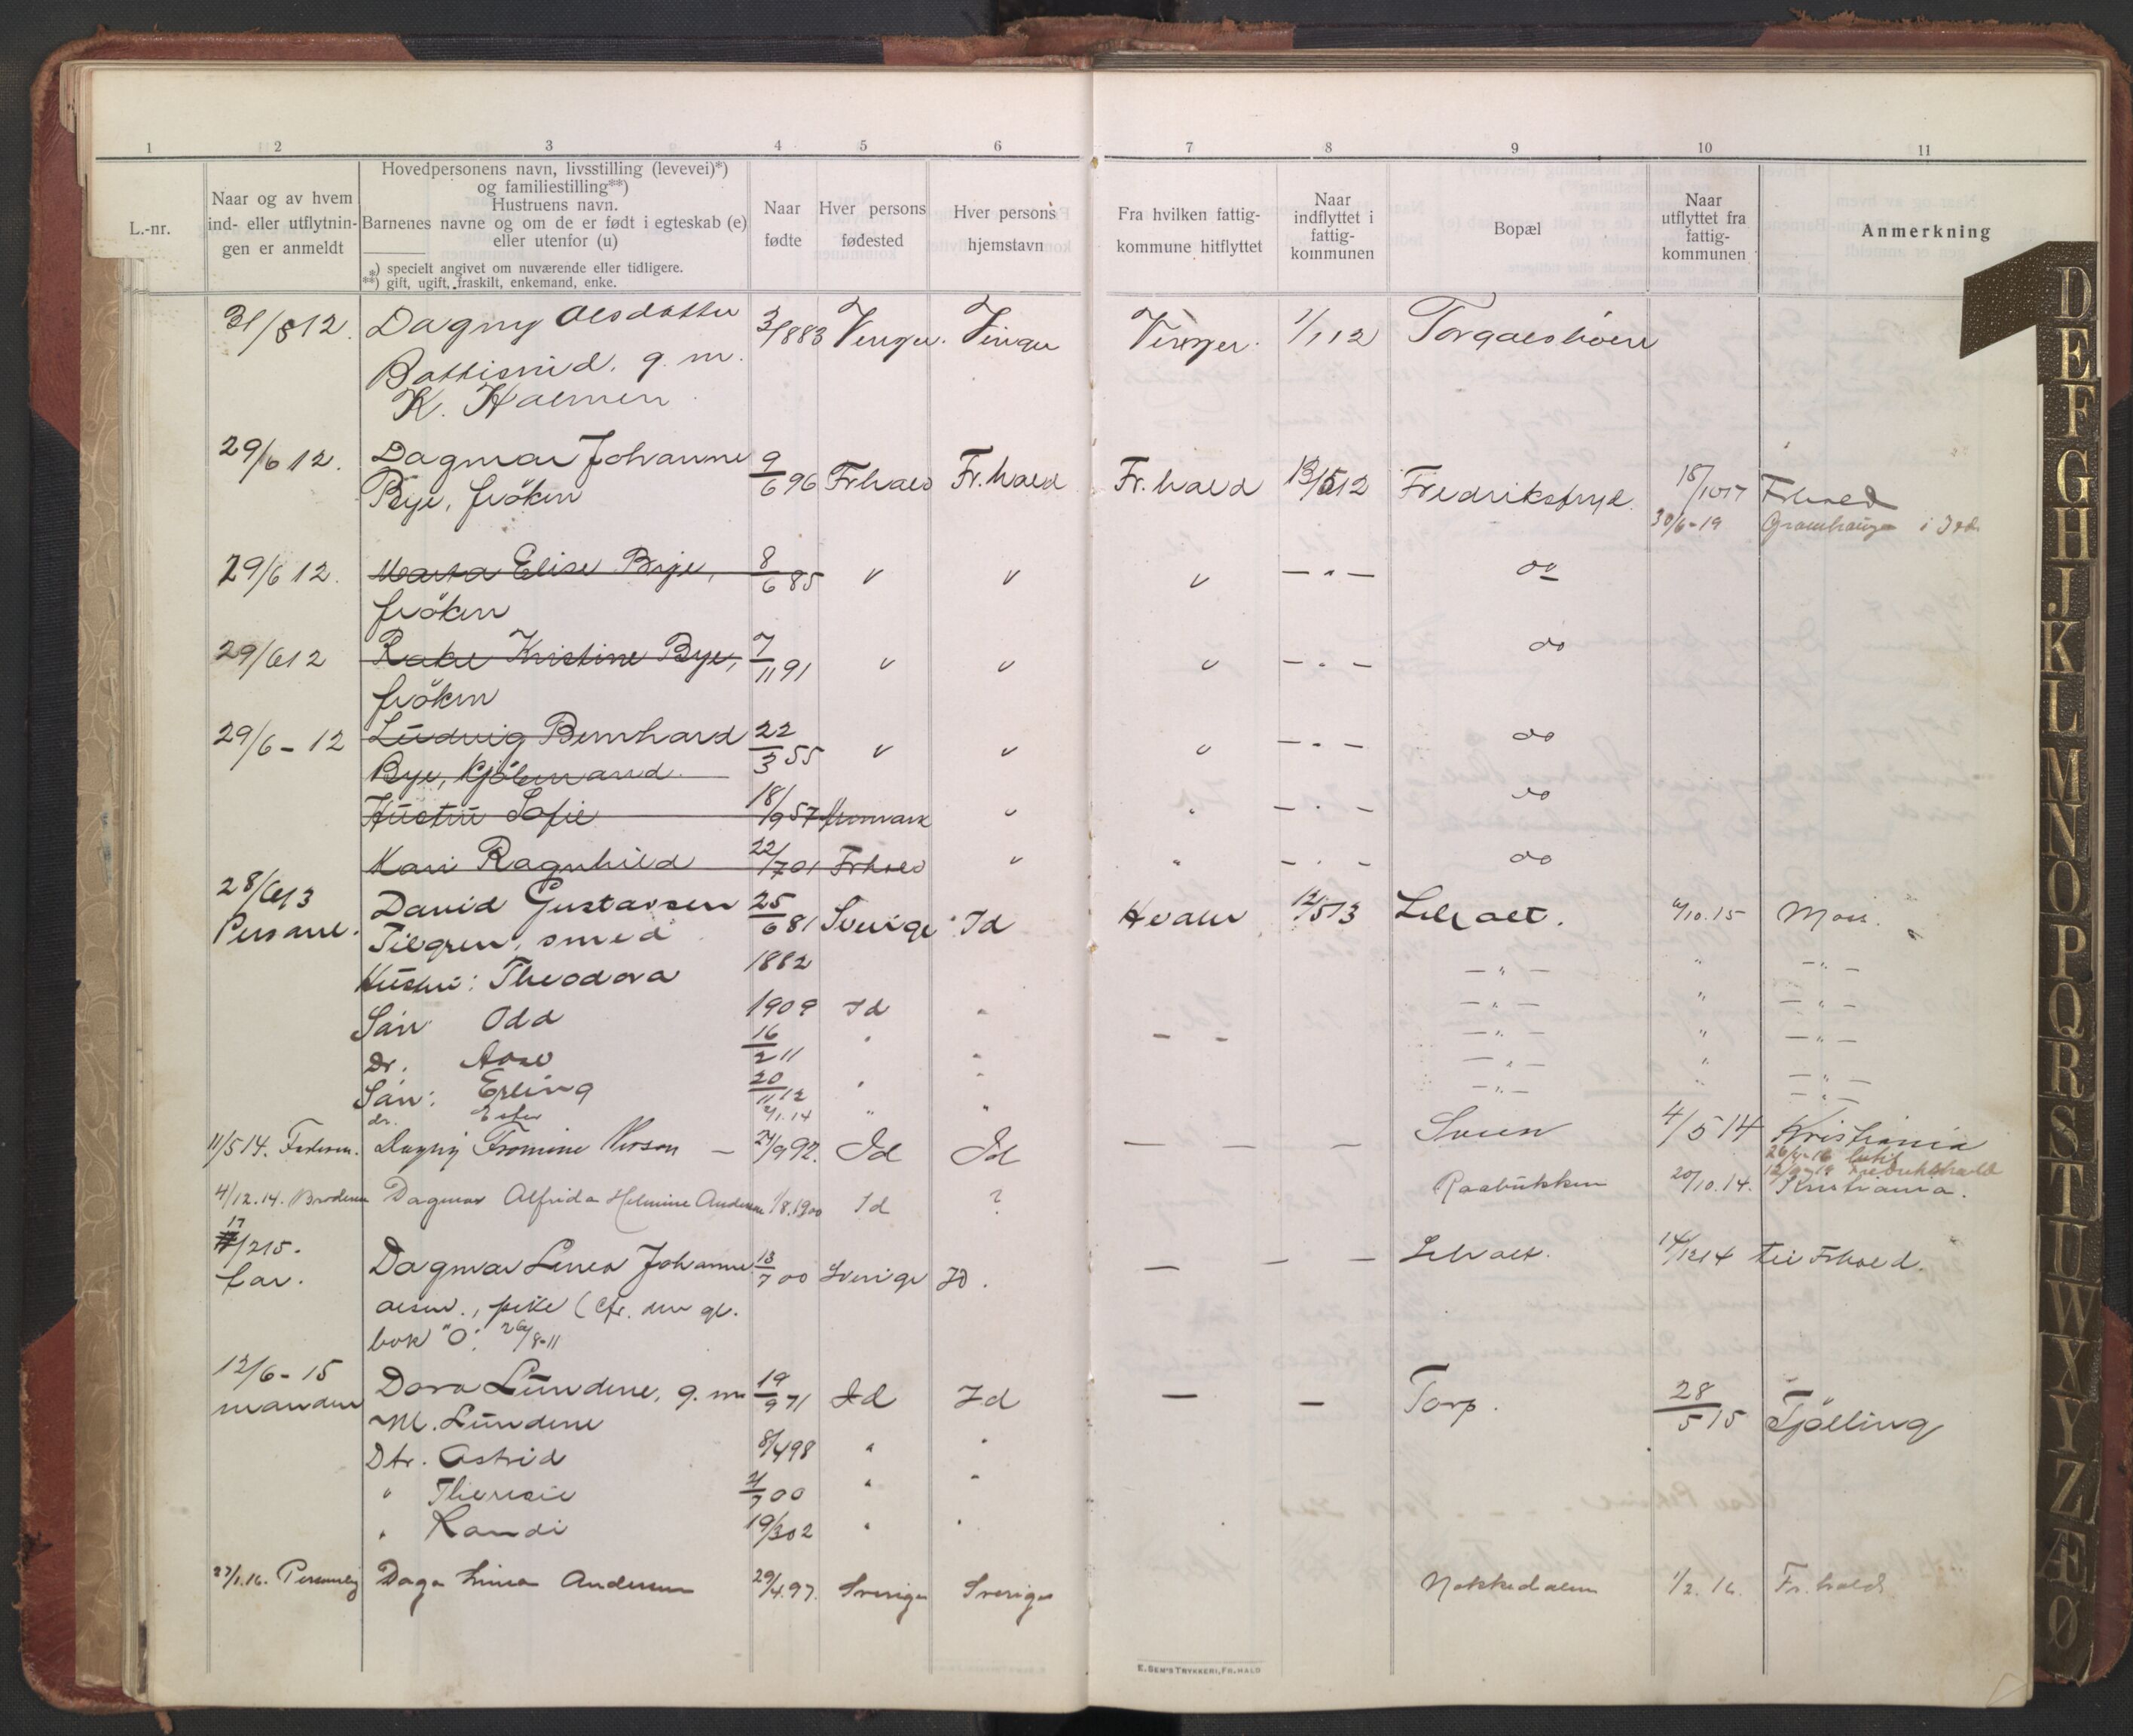 1 2 3 4 5 6 7 8 9 10 11
L.-nr.
Naar og av hvem
ind- eller utflytnin-
gen er anmeldt
Hovedpersonens navn, livsstilling (levevei)*)
og familiestilling**)
Hustruens navn.
Barnenes navne og om de er født i egteskab (e)
eller utenfor (u)
*) specielt angivet om nuværende eller tidligere.
**) gift, ugift, fraskilt, enkemand, enke.
Naar
fødte
Hver persons
fødested
Hver persons
hjemstavn
Fra hvilken fattig-
kommune hitflyttet
Naar
indflyttet i
fattig-
kommunen
Bopæl
Naar
utflyttet fra
fattig-
kommunen
Anmerkning
31/8 12. Dagny Olsdatter 3/883 Vinger. Vinger Vinger. 1/1 12
g. m.
K. Holmen
29/6 12. Dagmar Johanne 9/6 96 Fr.hald Fr. hald Fr. hald 13/5 12 Fredriksfryd. 15/10 17 Fr.hald
Bye, frøken 30/6-19 i Idd
29/6 12. Marta Elise Bye, 8/6 85 " " " — " — do
frøken
29/6 12 Kristine Bye, 7/11 91 " " " — " — do
frøken
29/6 - 12 Ludvig Bernhard 22/3 55 " " " — " — do
Bye, Kjøbmand.
Hustru Sofie 18/9 57 " " — " — do
Kari Ragnhild 22/7 01 Fr.hald " " — " — do
28/6 13 David Gustavsen 25/6 81 Sverige Id Hvaler 12/5 13 10.15 Moss.
Personl. Tilgren, smed
Hustru: Theodora 1882 — " — " — " —
Søn Odd 1909 Id " — " — " — " —
Dr. Aase 16/2 11 " " — — — " — " — " —
Søn: Erling 20/11 12 " " — " — " — " —
dr. Ester 1.14 " " — " — " — " —
11/5 14. Faderen. Dagny Fromine — 9 92. Id Id — — — Sven 4/5 14 Kristiania
4/12.14. Broderen Dagmar Alfrida Helmine Andersen 1/8.1900 Id ? Raabukken 20/10.14. Kristiania.
17/2 15. Dagmar Linea Johanne 13/7 00 Sverige Id. — — — 14/12 14 til Fr.hald.
far. pike (cfr. den gl.
bok "O". 26/8-11
12/6 - 15 Dora Lundene, g. m. 19/9 71 Id Id — — Torp. 28/5 15 Tjølling
manden M. Lundene
Dtr. Astrid 8/4 98 " "
" Theresie 7 00 " "
" Randi 19/3 02 " "
27/1.16. Personlig Daga Linea Andersen 29/4.97. Sverige Sverige Nokkedalen 1/2.16. Fr. hald.
E. SEM'S TRYKKERI, FR.HALD
D
E
F
G
H
I
J
K
L
M
N
O
P
Q
R
S
T
U
W
X
Y
Z
Æ
Ø